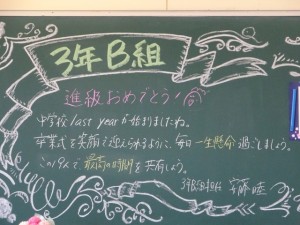 3年B組
進級おめでとう!
中学校last yearが始まりましたね。
卒業式を笑顔で迎えられるように、毎日一生懸命過ごしましょう。
最高の時間を共有しよう。
3年B組担任